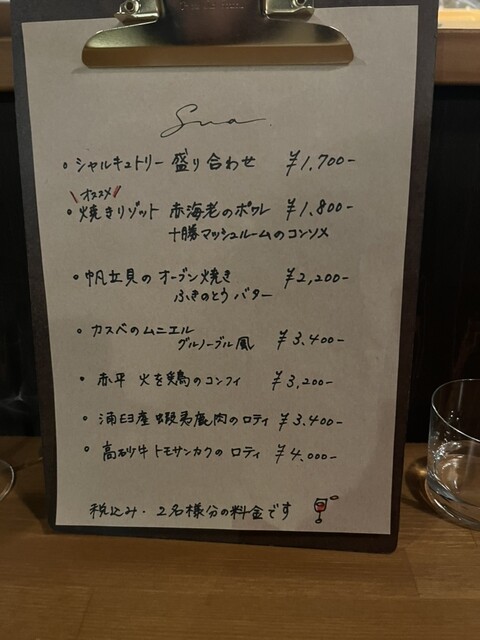 Sua
・シャルキュトリー 盛り合わせ ¥1,700-
\オススメ/
・焼きリゾット 赤海老のポワレ ¥1,800-
十勝マッシュルームのコンソメ
・帆立貝のオーブン焼き ¥2,200-
ふきのとうバター
・カスベのムニエル
グルノーブル風 ¥3,400-
・赤平 火を鶏のコンフィ ¥3,200-
・浦臼産 蝦夷鹿肉のロティ ¥3,400-
・高砂牛 トモサンカクのロティ ¥4,000-
税込み・2名様分の料金です